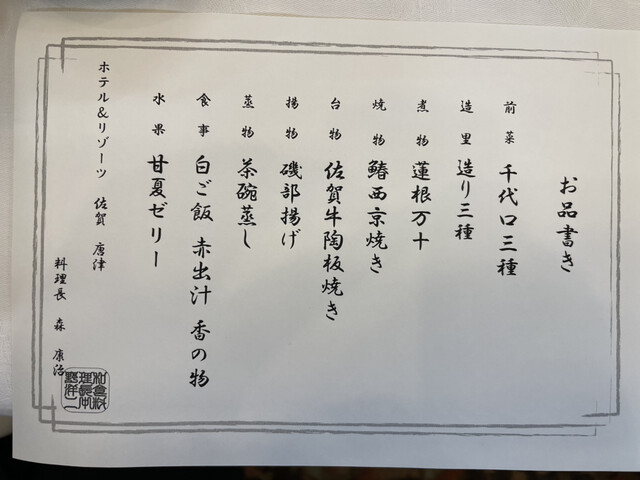 お品書き
前菜 千代口三種
造里 造り三種
煮物 蓮根万十
焼物 鰆西京焼き
台物 佐賀牛陶板焼き
揚物 磯部揚げ
蒸物 茶碗蒸し
食事 白ご飯 赤出汁 香の物
水果 甘夏ゼリー
ホテル&リゾーツ 佐賀 唐津
料理長 森 康治